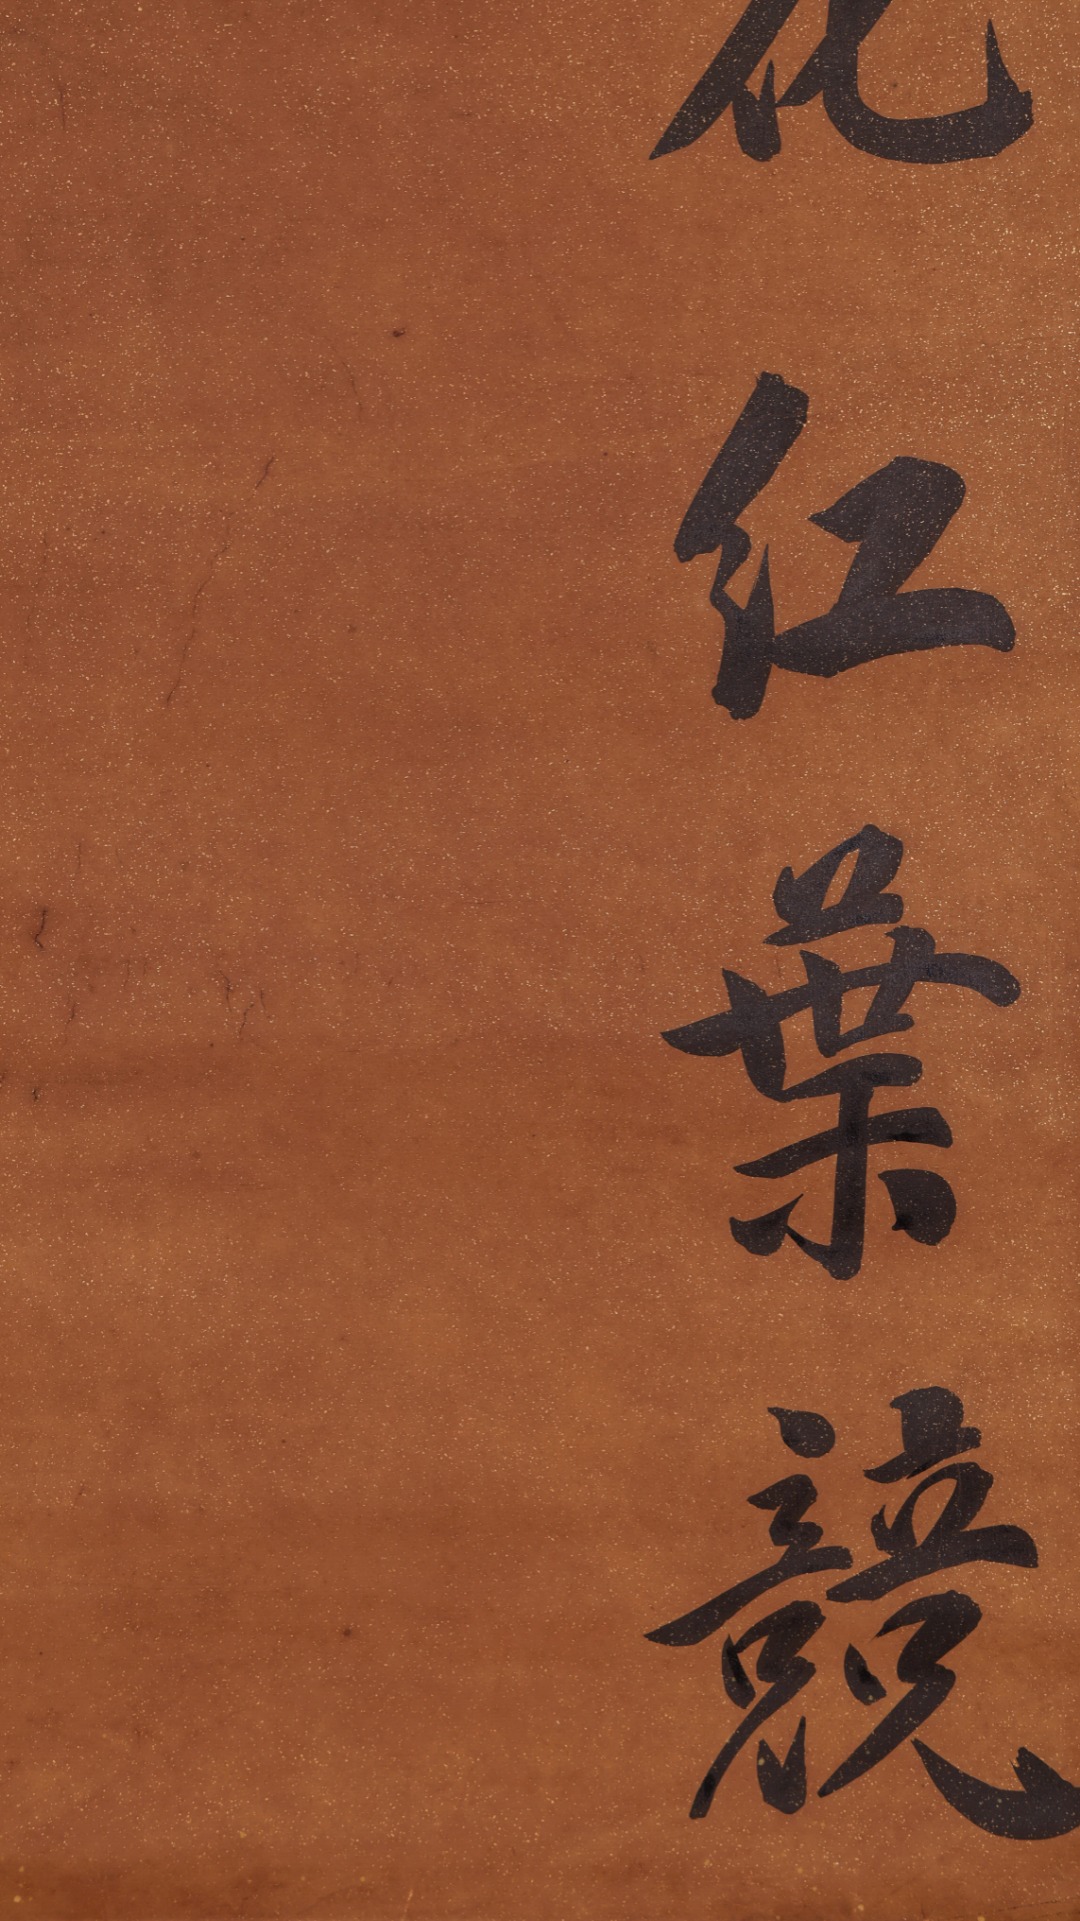 花红葉競